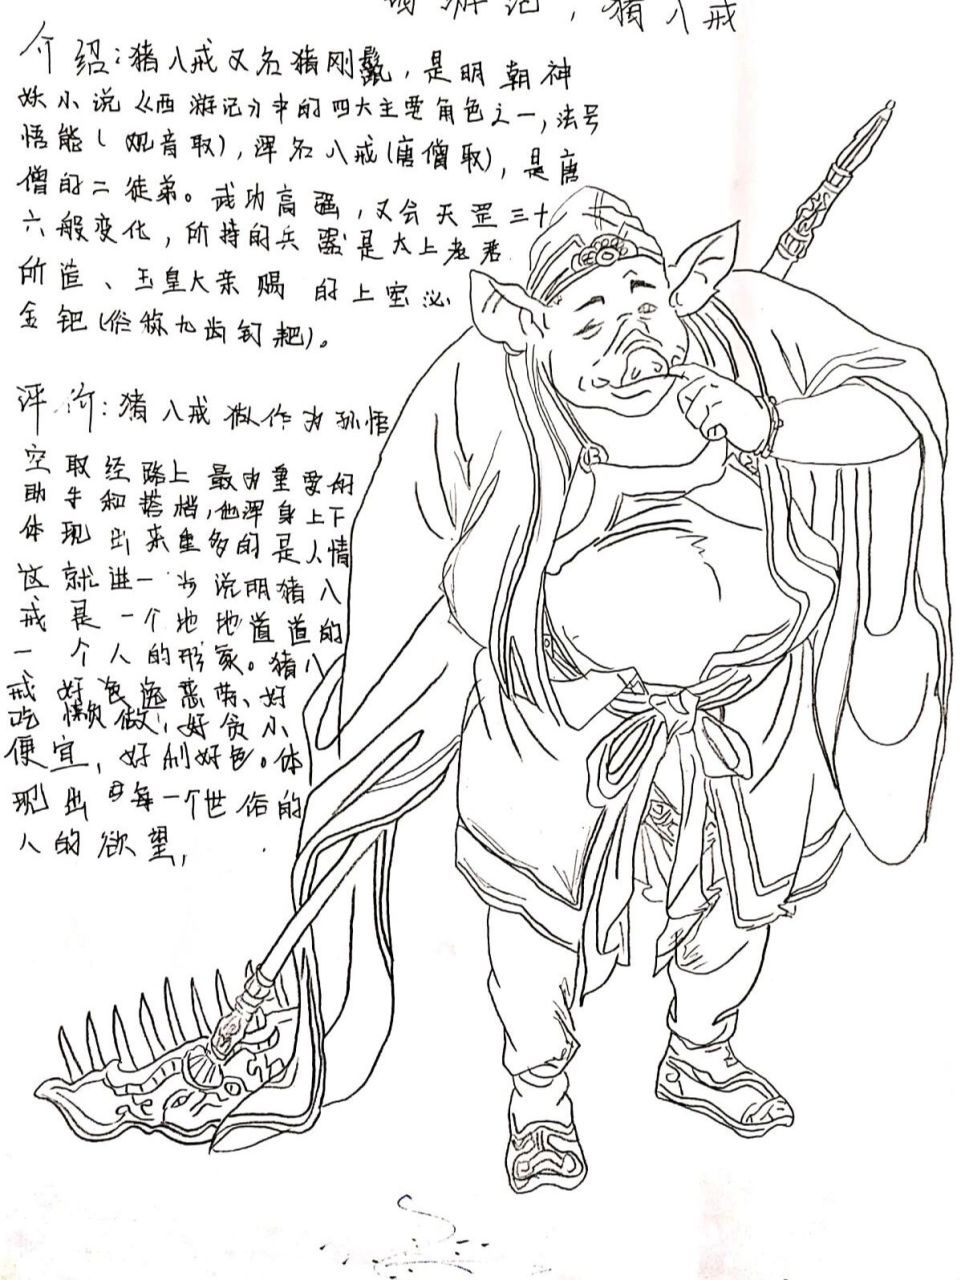 西游记，猪八戒
介绍：猪八戒又名猪刚鬣，是明朝神
妖小说《西游记》中的四大主要角色之一，法号
悟能（观音取），浑名八戒（唐僧取），是唐
僧的二徒弟。武功高强，又会天罡三十
六般变化，所持的兵器是太上老君
所造、玉皇大亲赐的上宝沁
金钯（俗称九齿钉耙）。
评价：猪八戒做作为孙悟
空取经路上最为重要的
助手和搭档，他浑身上下
体现出来重多的是人情
这就进一步说明猪八
戒是一个地地道道的
一个人的形象。猪八
戒好逸恶劳、好
吃懒做，好贪小
便宜，好利好色。体
现出每一个世俗的
人的欲望，